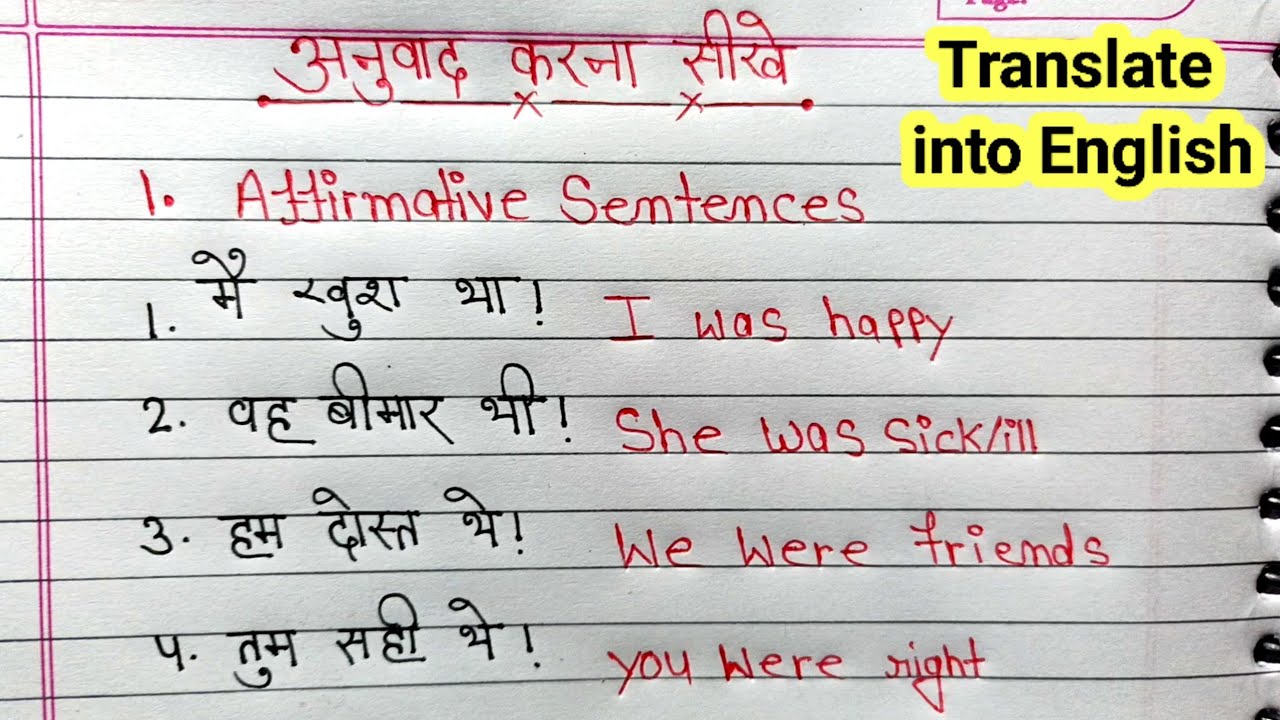 अनुवाद करना सीखे
Translate
into English
1. Affirmative Sentences
1. मै खुश था! I was happy
2. वह बीमार थी! She was sick/ill
3. हम दोस्त थे! We were friends
4. तुम सही थे! you were right